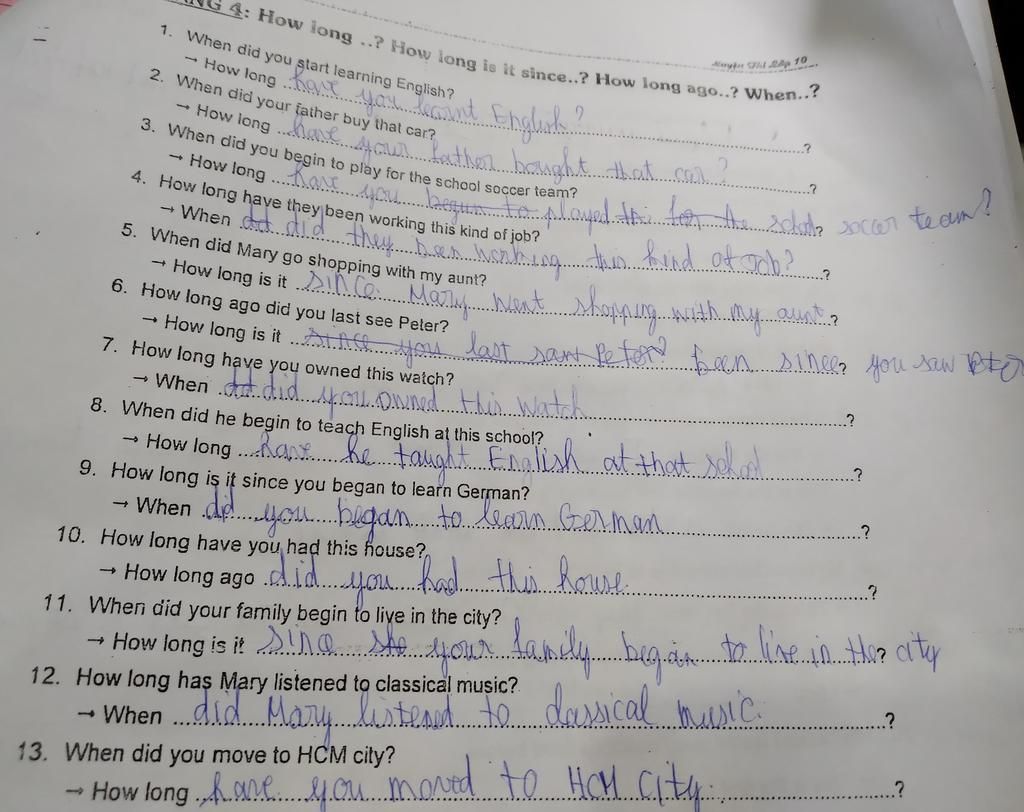 NG 4: How long ..? How long is it since..? How long ago..? When..?
1. When did you start learning English?
→ How long have you learnt English? ?
2. When did your father buy that car?
→ How long have your father bought that car? ?
3. When did you begin to play for the school soccer team?
→ How long have you begun to played for the school? soccer team?
4. How long have they been working this kind of job?
→ When did they been working this kind of job? ?
5. When did Mary go shopping with my aunt?
→ How long is it since Mary went shopping with my aunt ?
6. How long ago did you last see Peter?
→ How long is it since you last saw Peter? been since? you saw
7. How long have you owned this watch?
→ When did you owned this watch ?
8. When did he begin to teach English at this school?
→ How long have he taught English at that school ?
9. How long is it since you began to learn German?
→ When did you began to learn German ?
10. How long have you had this house?
→ How long ago did you had this house. ?
11. When did your family begin to live in the city?
→ How long is it since she your family began to live in the? city
12. How long has Mary listened to classical music?
→ When did Mary listened to classical music. ?
13. When did you move to HCM city?
→ How long have you moved to HCM City. ?